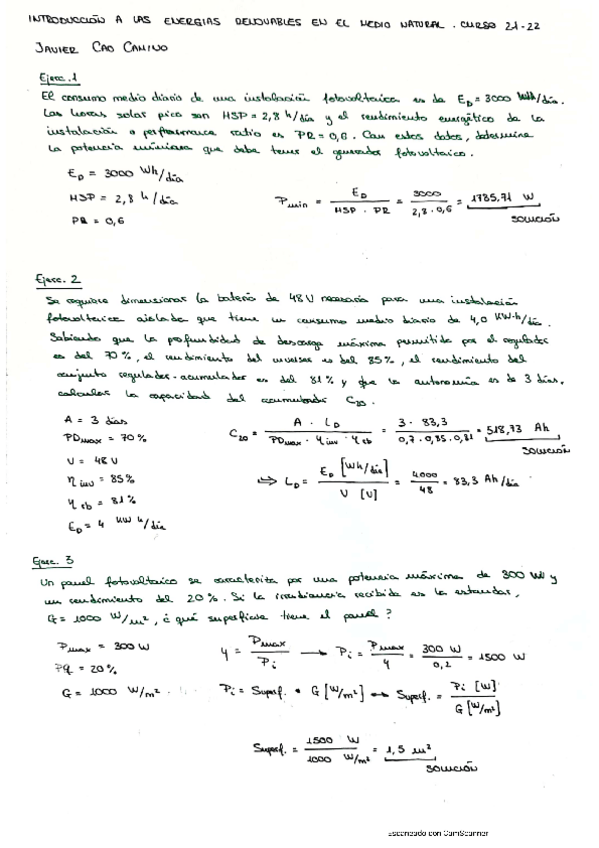 INTRODUCCIÓN A LAS ENERGIAS RENOVABLES EN EL MEDIO NATURAL. CURSO 21-22
JAVIER CAO CAMINO
Ejerc. 1
El consumo medio diario de una instalación fotovoltaica es de E_D = 3000 Wh/día.
Las horas solar pico son HSP = 2,8 h/día y el rendimiento energético de la
instalación o performance ratio es PR = 0,6. Con estos datos, determine
la potencia mínima que debe tener el generador fotovoltaico.
E_D = 3000 Wh/día
HSP = 2,8 h/día
PR = 0,6
P_min = E_D / (HSP · PR) = 3000 / (2,8 · 0,6) = 1785,71 W
SOLUCIÓN
Ejerc. 2
Se requiere dimensionar la batería de 48V necesaria para una instalación
fotovoltaica aislada que tiene un consumo medio diario de 4,0 kW·h/día.
Sabiendo que la profundidad de descarga máxima permitida por el regulador
es del 70%, el rendimiento del inversor es del 85%, el rendimiento del
conjunto regulador-acumulador es del 81% y que la autonomía es de 3 días,
calcular la capacidad del acumulador C20.
A = 3 días
PDmax = 70%
V = 48 V
η inv = 85%
η rb = 81%
E_D = 4 kW h/día
C20 = (A · L_D) / (PDmax · η inv · η rb) = (3 · 83,3) / (0,7 · 0,85 · 0,81) = 518,73 Ah
SOLUCIÓN
⇒ L_D = E_D [Wh/día] / V [V] = 4000 / 48 = 83,3 Ah/día
Ejerc. 3
Un panel fotovoltaico se caracteriza por una potencia máxima de 300 W y
un rendimiento del 20%. Si la irradiancia recibida es la estandar,
G = 1000 W/m², ¿qué superficie tiene el panel?
Pmax = 300 W
= 20%
G = 1000 W/m²
η = Pmax / Pi → Pi = Pmax / η = 300 W / 0,2 = 1500 W
Pi = Superf. · G [W/m²] → Superf. = Pi [W] / G [W/m²]
Superf. = 1500 W / 1000 W/m² = 1,5 m²
SOLUCIÓN
Escaneado con CamScanner